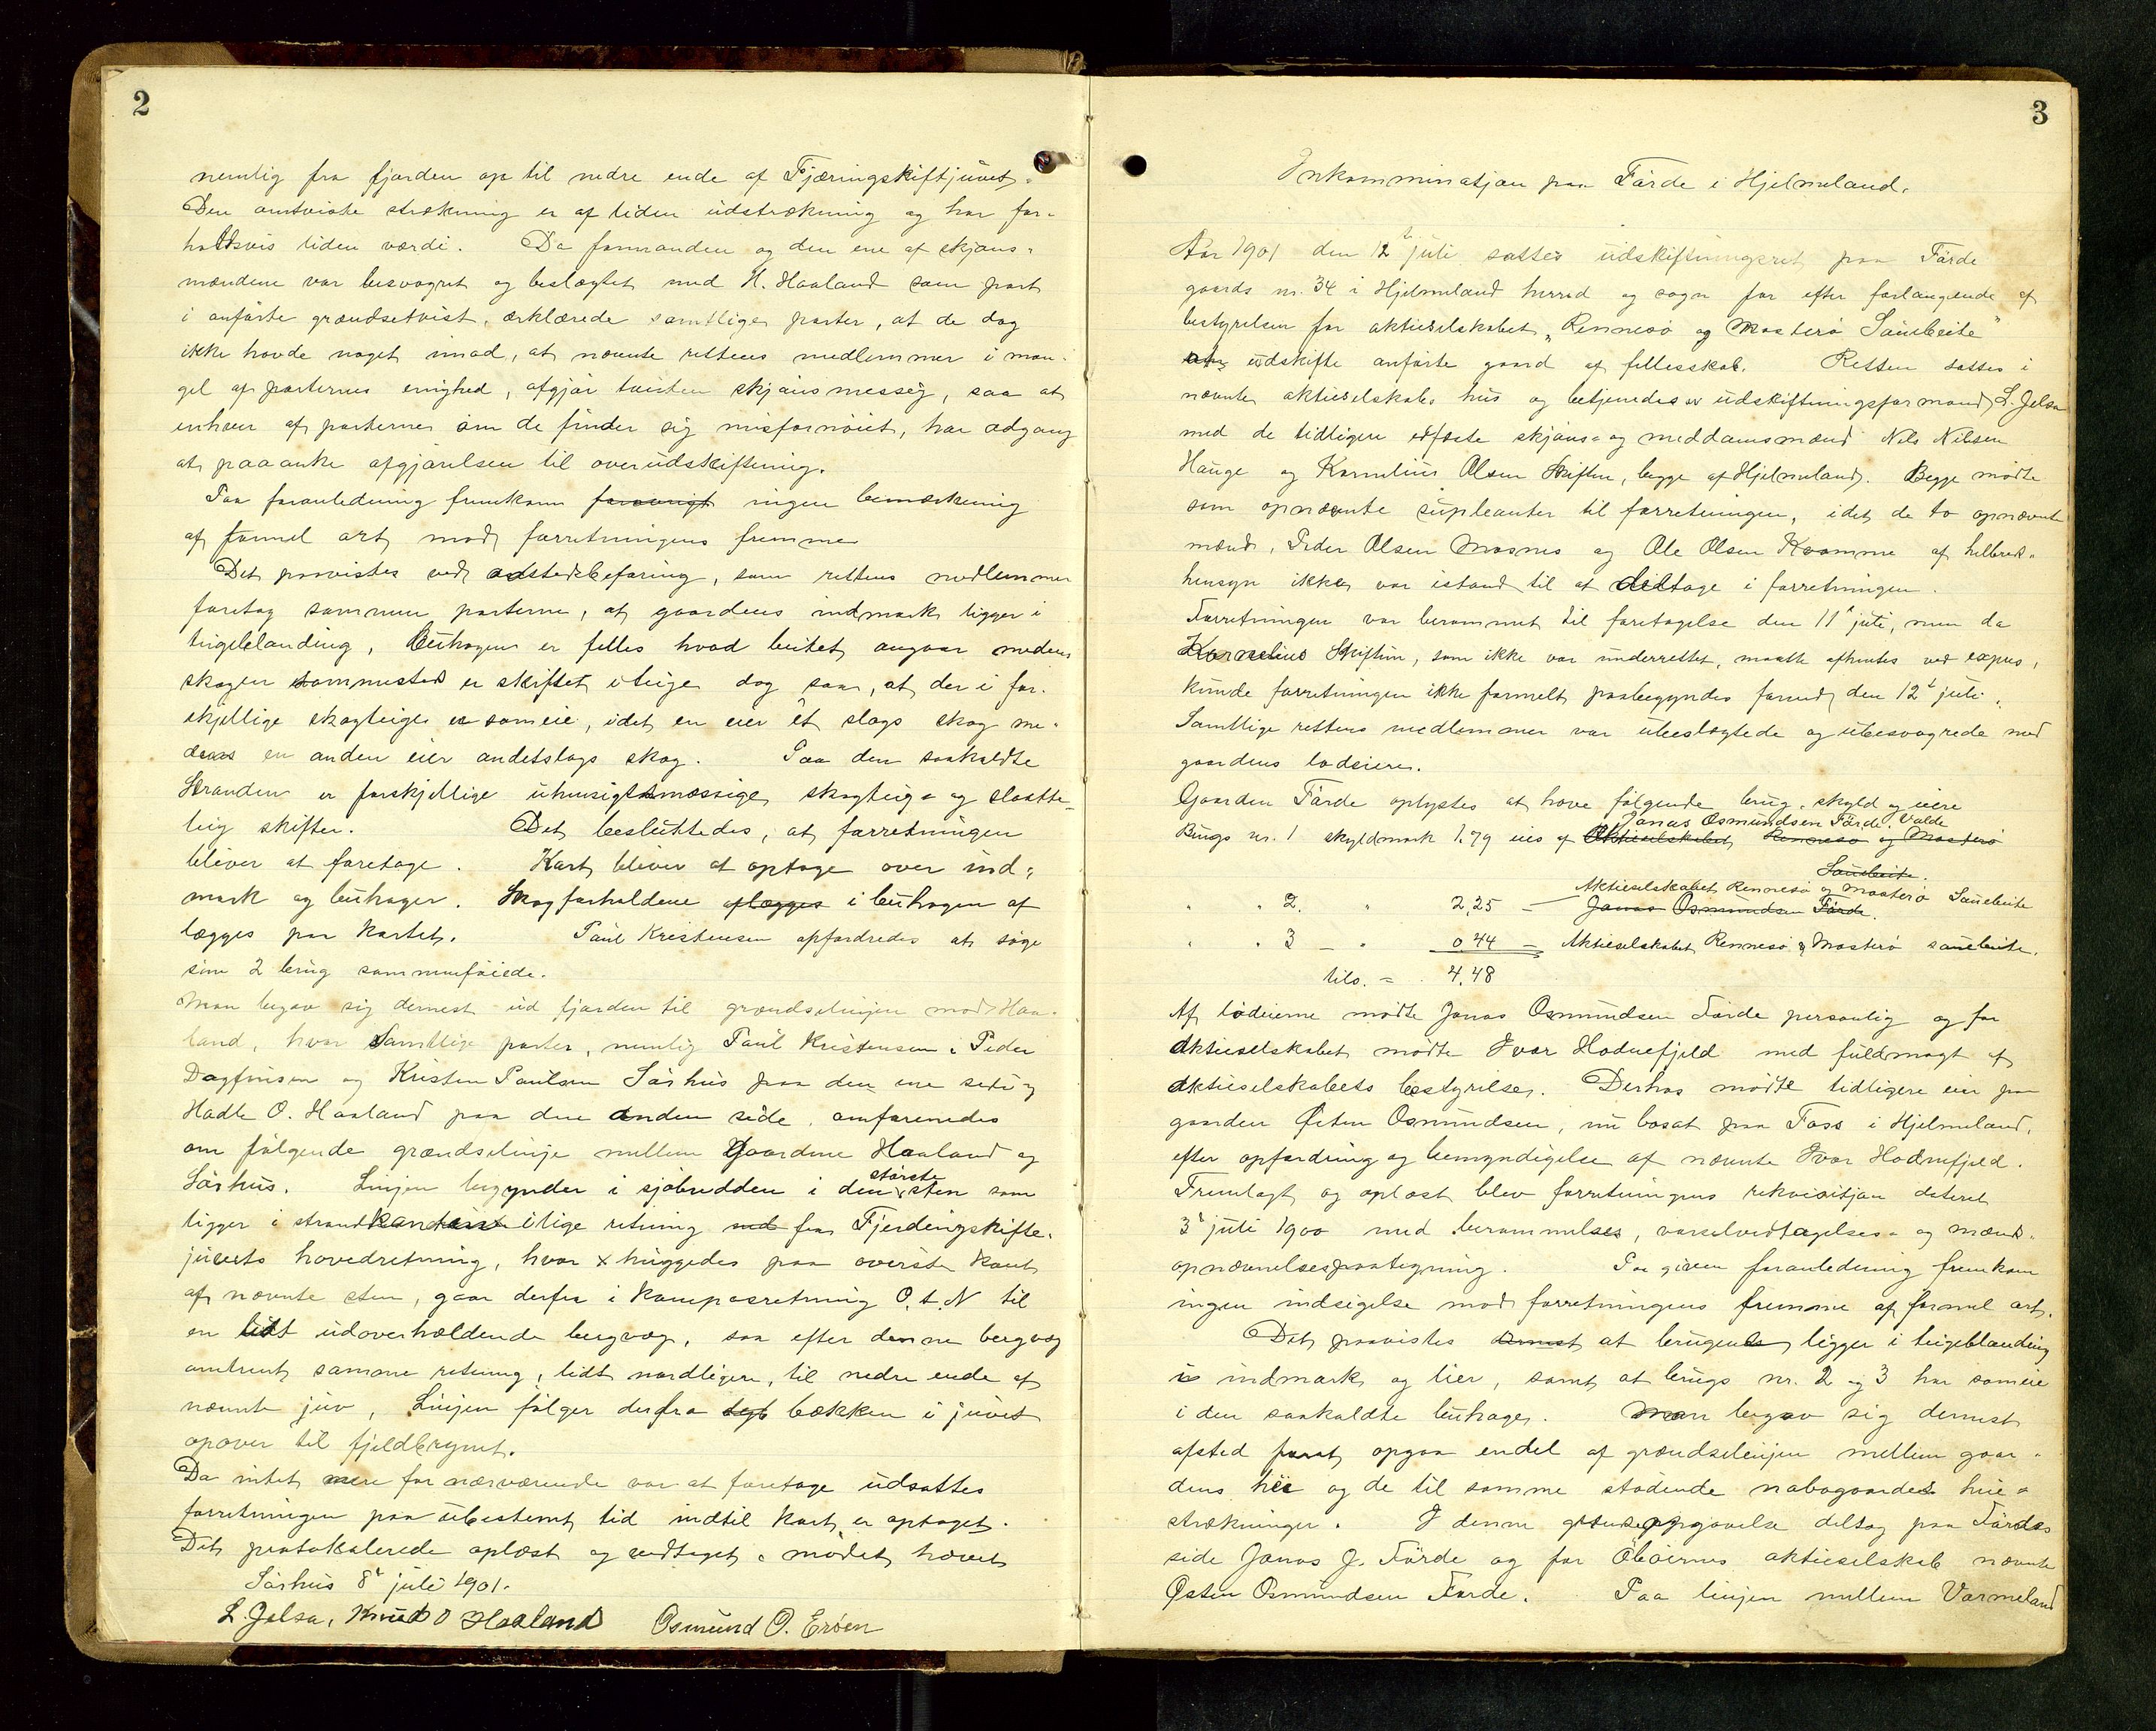 2
nemlig fra fjorden op til nedre ende af Fjæringskiftjuvet.
Den omtviste strækning er af liden udstrækning og har for-
holdsvis liden værdi. Da formanden og den ene af skjøns-
mændene var besvogret og beslægtet med H. Haaland som part
i anførte grændsetvist, erklærede samtlige parter, at de dog
ikke havde noget imod, at nævnte rettens medlemmer i man-
gel af parternes enighed, afgjør tvisten skjønsmessig, saa at
enhver af parterne om de finder sig misfornøiet, har adgang
at paaanke afgjørelsen til overudskiftning.
Paa foranledning fremkom forøvrigt ingen bemærkning
af formel art mod forretningens fremme
Det paavistes ved aastedsbefaring, som rettens medlemmer
foretog sammen parterne, at gaardens indmark ligger i
teigeblanding, Buhagen er felles hvad beitet angaar medens
skogen sammested er skiftet i teige dog saa, at der i for-
skjellige skogteige er sameie, idet en eier ét slags skog me-
dens en anden eier andetslags skog. Paa den saakaldte
Stranden er forskjellige uhensigtsmæssige skogteig- og slaatte-
teig skifter. Det besluttedes, at forretningen
bliver at foretage. Kart bliver at optage over ind-
mark og buhager. Skogforholdene aflægges i buhagen af
lægges paa kartet. Paul Kristensen opfordredes at søge
sine 2 brug sammenføiede.
Man begav sig dernest ud fjorden til grændselinjen mod Haa-
land, hvor samtlige parter, nemlig Paul Kristensen, Peder
Dagfinsen og Kristen Paulsen Sørhus paa den ene side og
Hadle O. Haaland paa den anden side, omforenedes
om følgende grændselinje mellem gaardene Haaland og
største
Sørhus. Linjen begynder i sjøbredden i den sten som
ligger i strandkanten i lige retning ved fra Fjerdingskifte-
juvets hovedretning, hvor x huggedes paa øverste kant
af nævnte sten, gaar derfra i kompasretning O. t. N til
en lidt udoverhældende bergvæg, saa efter denne bergvæg
omtrent samme retning, lidt nordligere, til nedre ende af
nævnte juv, Linjen følger derfra bækken i juvet
opover til fjeldbrynet.
Da intet mere for nærværende var at foretage udsattes
forretningen paa ubestemt tid indtil kart er optaget.
Det protokolerede oplæst og vedtaget. mødet hævet
Sørhus 8de juli 1901.
L. Jelsa, Knud O Haaland Osmund O. Erøen
3
Inkommination paa Førde i Hjelmeland.
Aar 1901 den 12te juli sattes udskiftningsret paa Førde
gaards nr. 34 i Hjelmeland herred og sogn for efter forlangende af
bestyrelsen for aktieselskabet „Rennesø og Mosterø Sauebeite"
at udskifte anførte gaard af fellesskab. Retten sattes i
nævnte aktieselskabs hus og betjenedes av udskiftningsformand L. Jelsa
med de tidligere edfæste skjøns- og meddomsmænd Nils Nilsen
Hauge og Kornelius Olsen Skiftun, begge af Hjelmeland. Begge mødte
som opnævnte supleanter til forretningen, idet de to opnævnte
mænd, Peder Olsen Mosnes og Ole Olsen Kvamme af helbreds-
hensyn ikke var istand til at deltage i forretningen.
Forretningen var berammet til foretagelse den 11te juli, men da
Kornelius Skiftun, som ikke var underrettet, maatte afhentes ved expres,
kunde forretningen ikke formelt paabegyndes forend den 12te juli.
Samtlige rettens medlemmer var ubeslægtede og ubesvogrede med
gaardens lodeiere.
Gaarden Førde oplystes at have følgende brug, skyld og eiere
Jonas Osmundsen Førde. Valde
Brugs nr. 1 skyldmark 1.79 eies af Aktieselskabet Rennesø og Mosterø
Sauebeite.
Aktieselskabet Rennesø og Mosterø Sauebeite
" " 2. " 2,25 – Jonas Osmundsen Førde.
" " 3 – " 0 44 – Aktieselskabet Rennesø & Mosterø sauebeite.
tils. = 4,48
Af lodeierne mødte Jonas Osmundsen Førde personlig og for
aktieselskabet mødte Ivar Hodnefjeld med fuldmagt af
aktieselskabets bestyrelse. Derhos mødte tidligere eier paa
gaarden Østen Osmundsen, nu bosat paa Foss i Hjelmeland,
efter opfordring og bemyndigelse af nævnte Ivar Hodnefjeld.
Fremlagt og oplæst blev forretningens rekvisitjon dateret
3de juli 1900 med berammelses, varselvedtagelses- og mænds-
opnævnelsespaategning. Paa given foranledning fremkom
ingen indsigelse mod forretningens fremme af formel art.
Det paavistes dernest at brugene ligger i teigeblanding
i indmark og lier, samt at brugs nr. 2 og 3 har sameie
i den saakaldte buhage. Man begav sig dernest
afsted forat opgaa endel af grændselinjen mellem gaar-
dens hei og de til samme stødende nabogaardes hei-
strækninger. I denne grændseopgaaelse deltog paa Førdes
side Jonas J. Førde og for øbøernes aktieselskab nævnte
Østen Osmundsen Førde. Paa linjen mellem Varmeland